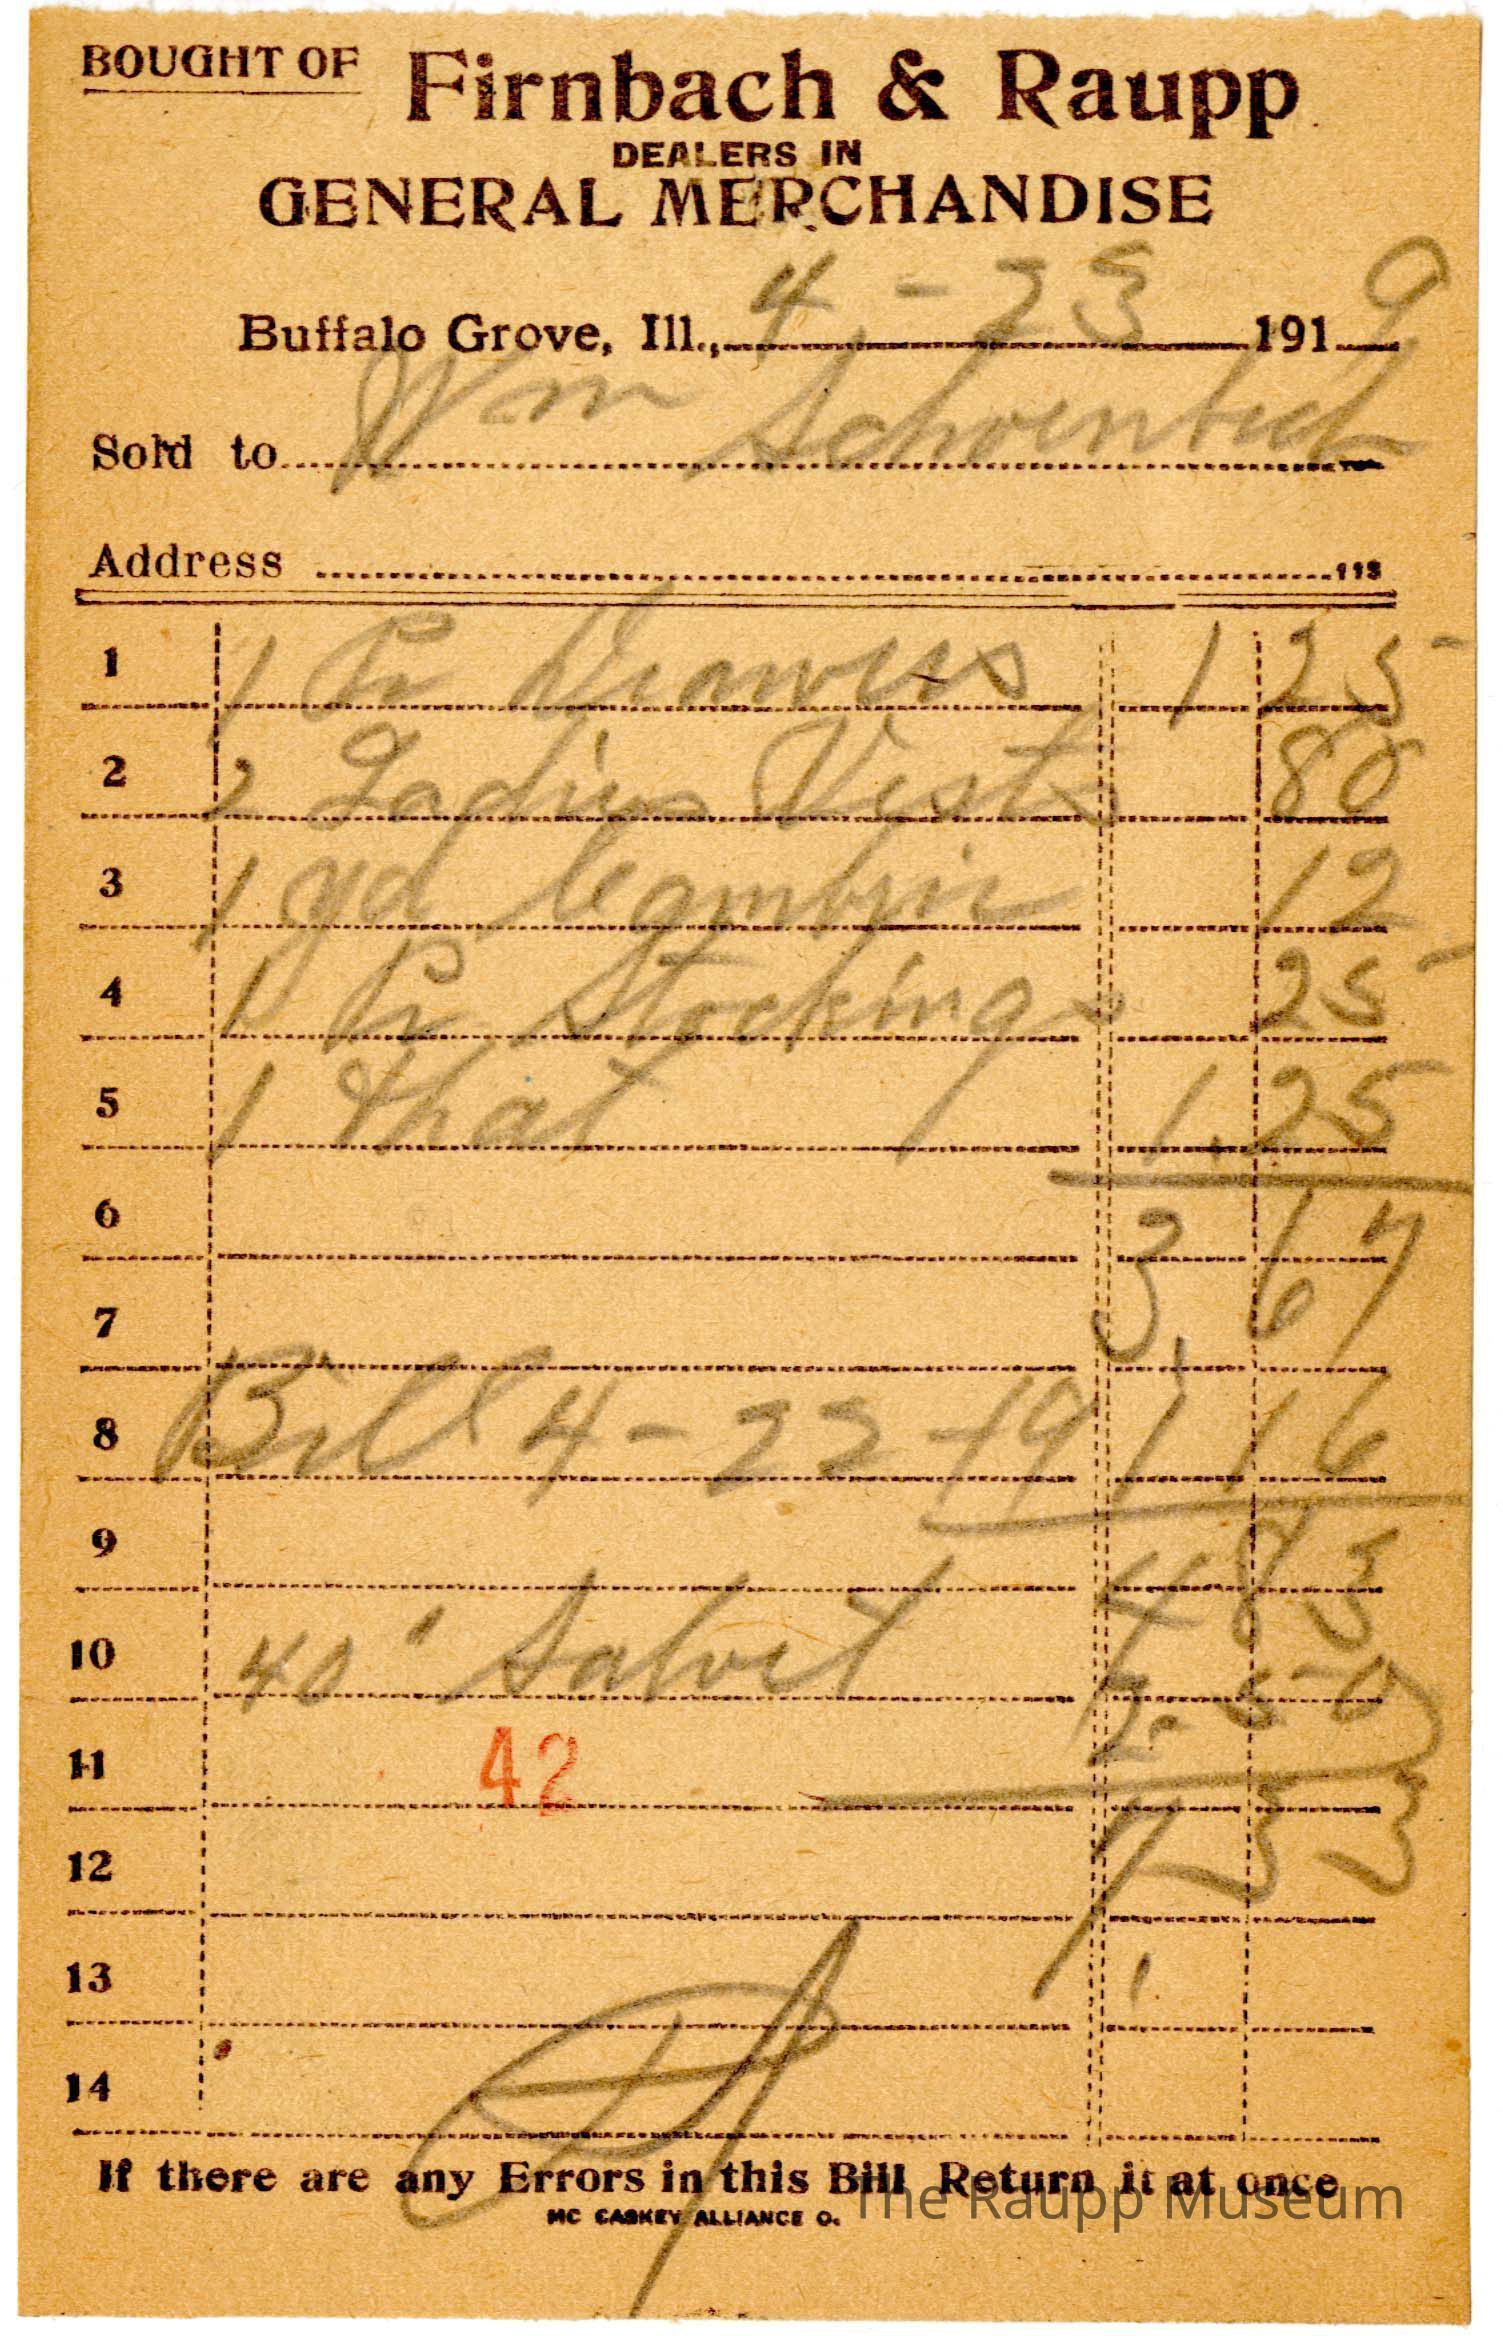 BOUGHT OF Firnbach & Raupp
DEALERS IN
GENERAL MERCHANDISE
Buffalo Grove, Ill., 4-23 1919
Sold to Wm
Address 113
1 1 Pr Drawers 1 25
2 2 Ladies Vests 80
3 1 yd Cambric 12
4 1 Pr Stockings 25
5 1 Hat 1.25
6 3.67
7
8 Bill 4-22-19 1 16
9 4 83
10 40" 2.50
11 42
12 7 33
13
14
If there are any Errors in this Bill Return it at once
MC CASKEY ALLIANCE O.
The Raupp Museum